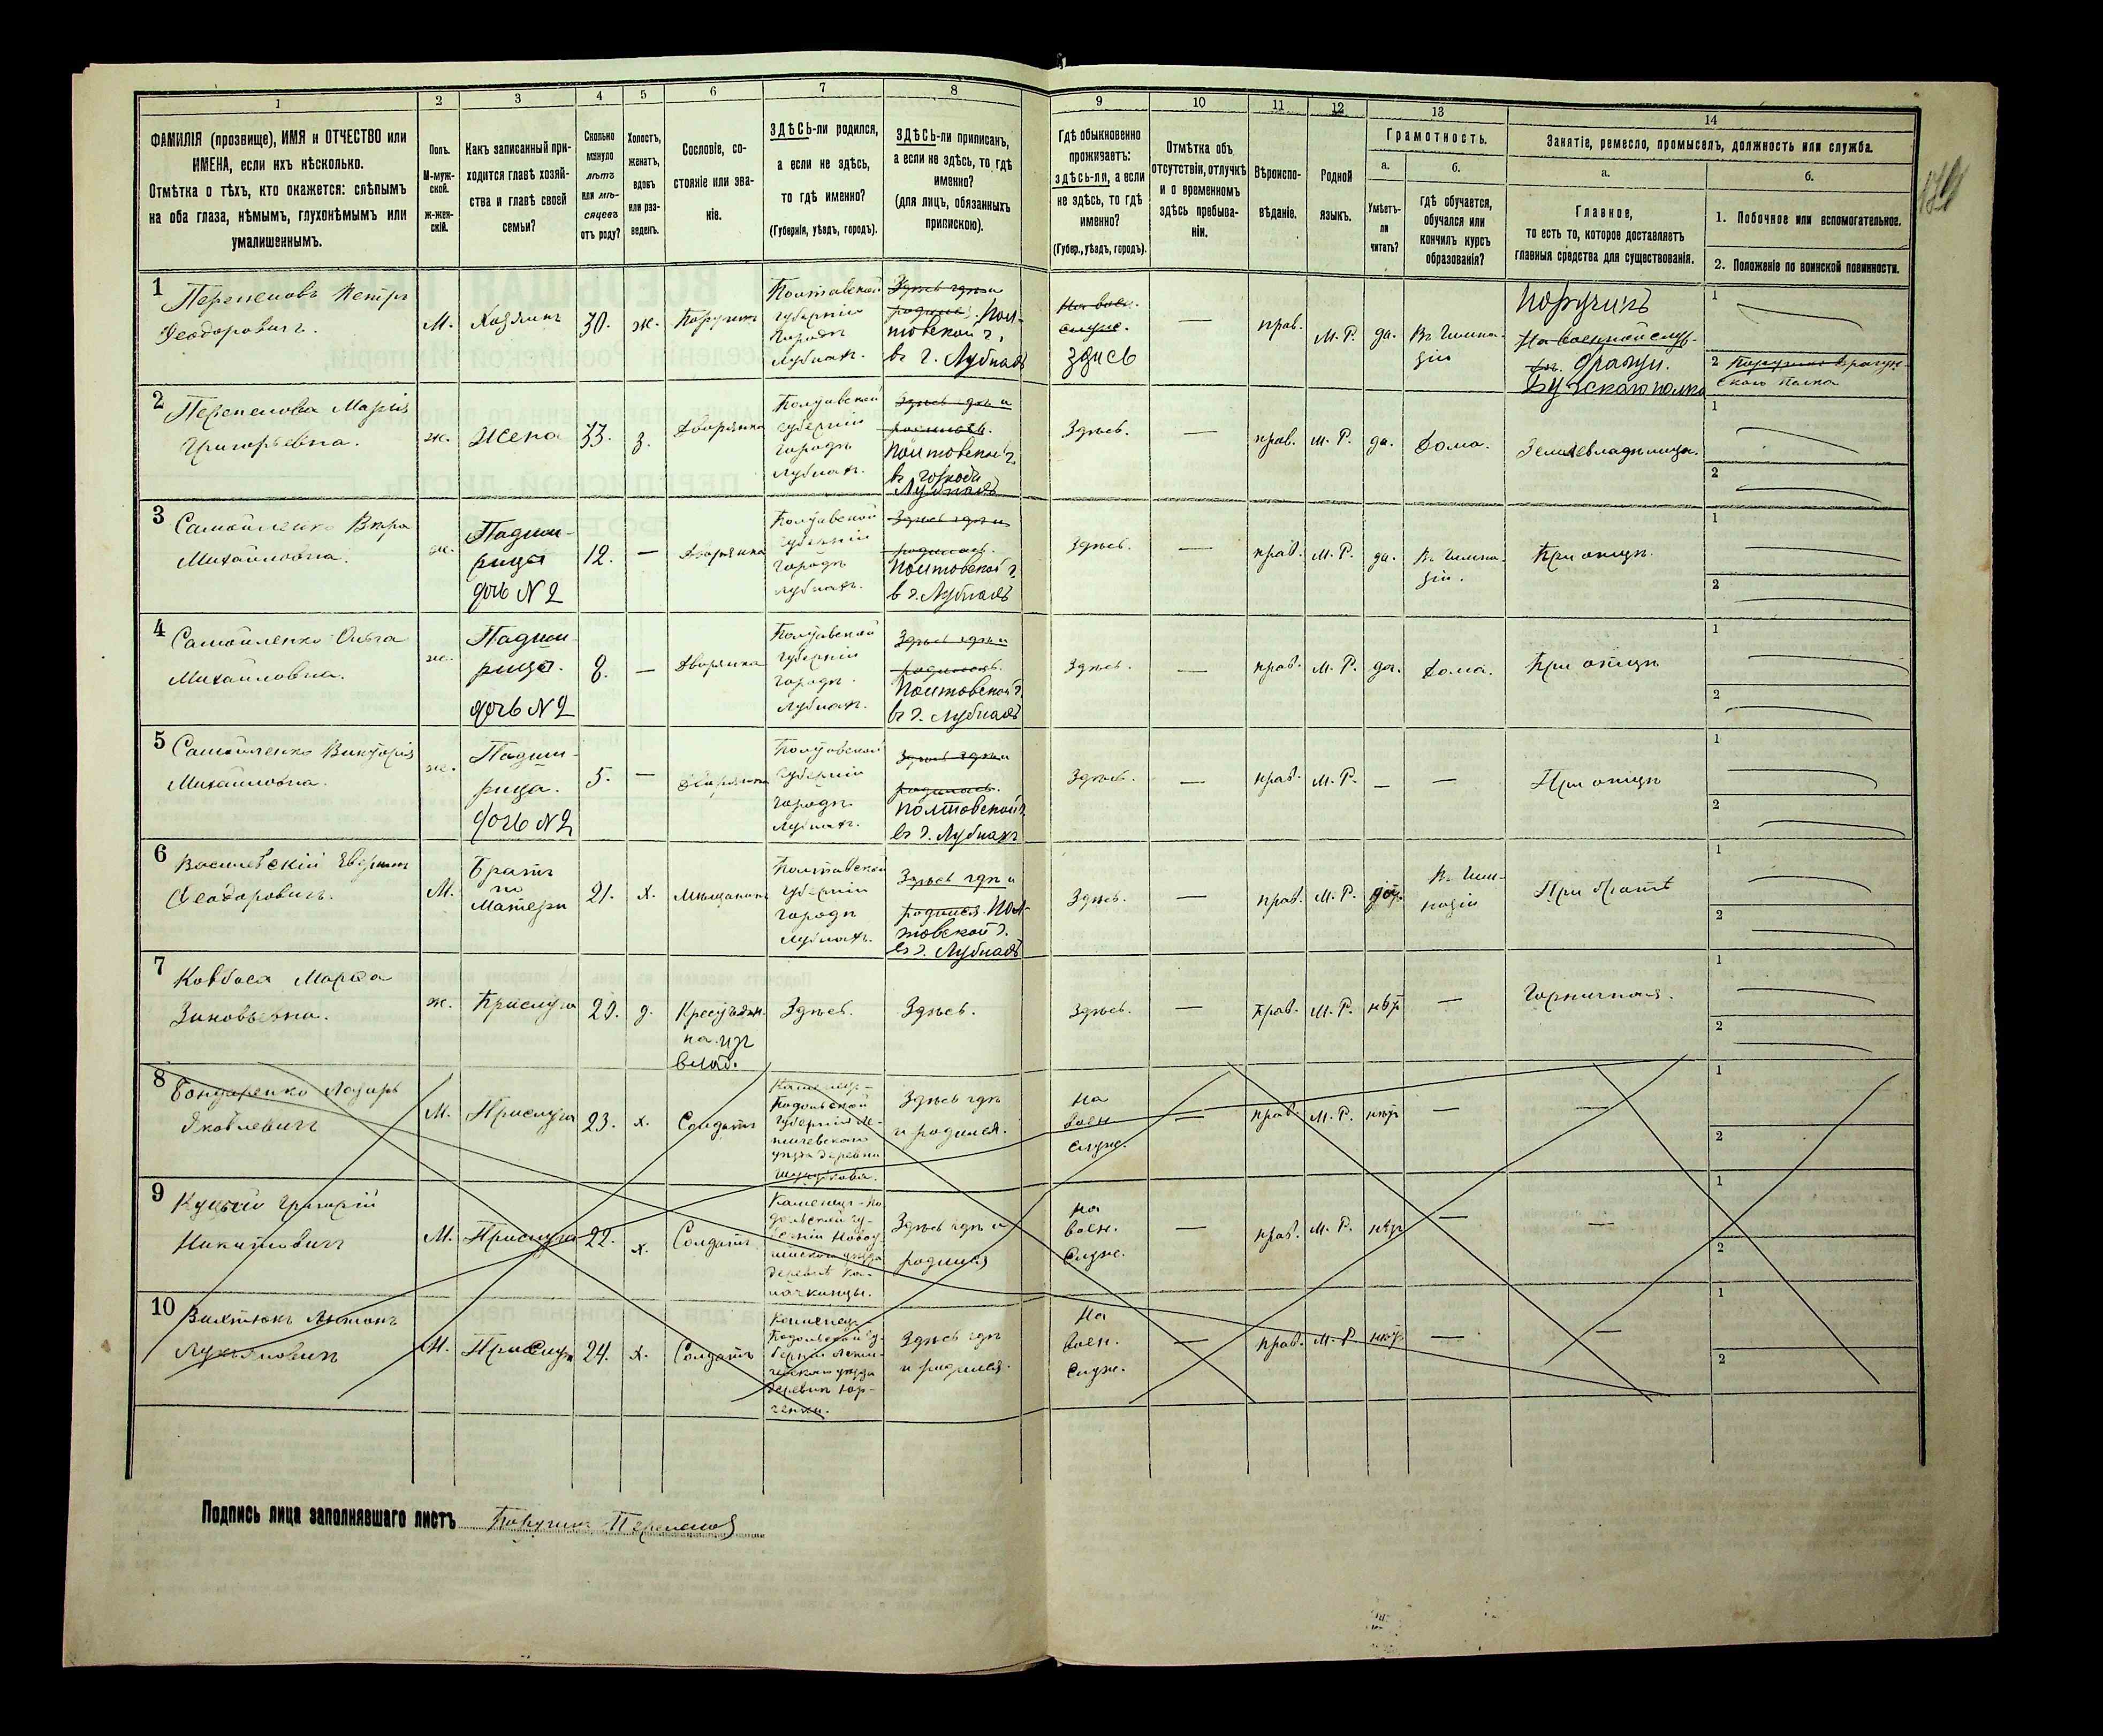 1 2 3 4 5 6 7 8 9 10 11 12 13 14
ФАМИЛІЯ (прозвище), ИМЯ и ОТЧЕСТВО или
ИМЕНА, если ихъ нѣсколько.
Отмѣтка о тѣхъ, кто окажется: слѣпымъ
на оба глаза, нѣмымъ, глухонѣмымъ или
умалишеннымъ.
Полъ.
М-муж-
ской.
ж-жен-
скій.
Какъ записанный при-
ходится главѣ хозяй-
ства и главѣ своей
семьи?
Сколько
минуло
лѣтъ
или мѣ-
сяцевъ
отъ роду?
Холостъ,
женатъ,
вдовъ
или раз-
веденъ.
Сословіе, со-
стояніе или зва-
ніе.
ЗДѢСЬ-ли родился,
а если не здѣсь,
то гдѣ именно?
(Губернія, уѣздъ, городъ).
ЗДѢСЬ-ли приписанъ,
а если не здѣсь, то гдѣ
именно?
(для лицъ, обязанныхъ
припискою).
Гдѣ обыкновенно
проживаетъ:
здѣсь-ли, а если
не здѣсь, то гдѣ
именно?
(Губер., уѣздъ, городъ).
Отмѣтка объ
отсутствіи, отлучкѣ
и о временномъ
здѣсь пребыва-
ніи.
Вѣроиспо-
вѣданіе.
Родной
языкъ.
Грамотность.
а.
Умѣетъ-
ли
читать?
б.
Гдѣ обучается,
обучался или
кончилъ курсъ
образованія?
Занятіе, ремесло, промыселъ, должность или служба.
а.
Главное,
то есть то, которое доставляетъ
главныя средства для существованія.
б.
1. Побочное или вспомогательное.
2. Положеніе по воинской повинности.
1
Перепеловъ Петръ
Феодоровичъ.
М.
Хозяинъ
30.
ж.
Поручикъ
Полтавской
губерніи
городъ
Лубнахъ.
Здѣсь гдѣ и
родился. Пол-
товской г.
въ г. Лубнахъ
На воен.
служ.
Здѣсь
—
прав.
М. Р.
да.
Въ Гимна-
зіи
Поручикъ
На военной служ-
бѣ. Драгун.
Бугскаго полка
1
2 Поручикъ Драгун-
скаго полка
2
Перепелова Марія
Григорьевна.
ж.
Жена
33.
з.
Дворянка
Полтавской
губерніи
городъ
Лубнахъ.
Здѣсь гдѣ и
родилась.
Полтовской г.
въ городѣ
Лубнахъ
Здѣсь.
—
прав.
М. Р.
да.
Дома.
Землевладѣлица.
1
2
3
Самойленко Вѣра
Михайловна.
ж.
Падчи-
рица
дочь N 2
12.
—
Дворянка
Полтавской
губерніи
городъ
Лубнахъ.
Здѣсь гдѣ и
родилась.
Полтовской г.
въ г. Лубнахъ
Здѣсь.
—
прав.
М. Р.
да.
Въ Гимна-
зіи.
При отцѣ.
1
2
4
Самойленко Ольга
Михайловна.
ж.
Падчи-
рица.
дочь N 2
8.
—
Дворянка
Полтавской
губерніи
городъ
Лубнахъ.
Здѣсь гдѣ и
родилась.
Полтовской г.
въ г. Лубнахъ
Здѣсь.
—
прав.
М. Р.
да.
Дома.
При отцѣ
1
2
5
Самойленко Викторія
Михайловна.
ж.
Падчи-
рица.
дочь N 2
5.
—
Дворянка
Полтавской
губерніи
городъ
Лубнахъ.
Здѣсь гдѣ и
родилась.
Полтовской г.
въ г. Лубнахъ
Здѣсь.
—
прав.
М. Р.
—
—
При отцѣ
1
2
6
Василевскій
Феодоровичъ.
М.
Братъ
по
Матери
21.
х.
Мѣщанинъ
Полтавской
губерніи
городъ
Лубнахъ.
Здѣсь гдѣ и
родился. Пол-
товской г.
въ г. Лубнахъ
Здѣсь.
—
прав.
М. Р.
Въ Гим-
назіи
При братѣ
1
2
7
Ковбаса Марфа
Зиновьевна.
ж.
Прислуга
20.
д.
Крестьян-
ка изъ
влад.
Здѣсь.
Здѣсь.
Здѣсь.
—
прав.
М. Р.
нѣт
—
Горничная.
1
2
8
Бондаренко Лазарь
Яковлевичъ
М.
Прислуга
23.
х.
Солдатъ
Каменец-
Подольской
губерніи Ле-
тичевскаго
уѣзда деревни
Здѣсь гдѣ
и родился.
На
воен
служ.
—
прав.
М. Р.
нѣт
—
—
1
2
9
Куцый Григорій
Никитовичъ
М.
Прислуга
22.
х.
Солдатъ
Каменец-По
дольской гу-
берніи Новоу
шицкаго уѣзда
деревнѣ
Здѣсь гдѣ и
родился
На
воен.
служ.
—
прав.
М. Р.
нѣт
—
—
1
2
10
Антонъ
Лукьяновичъ
М.
Прислуга
24.
х.
Солдатъ
Каменец
Подольской гу-
берніи Лети-
чевскаго уѣзда
деревни
Здѣсь гдѣ
и родился.
На
воен.
служ.
—
прав.
М. Р.
нѣт
—
—
1
2
Подпись лица заполнявшаго листъ Поручикъ Перепелов